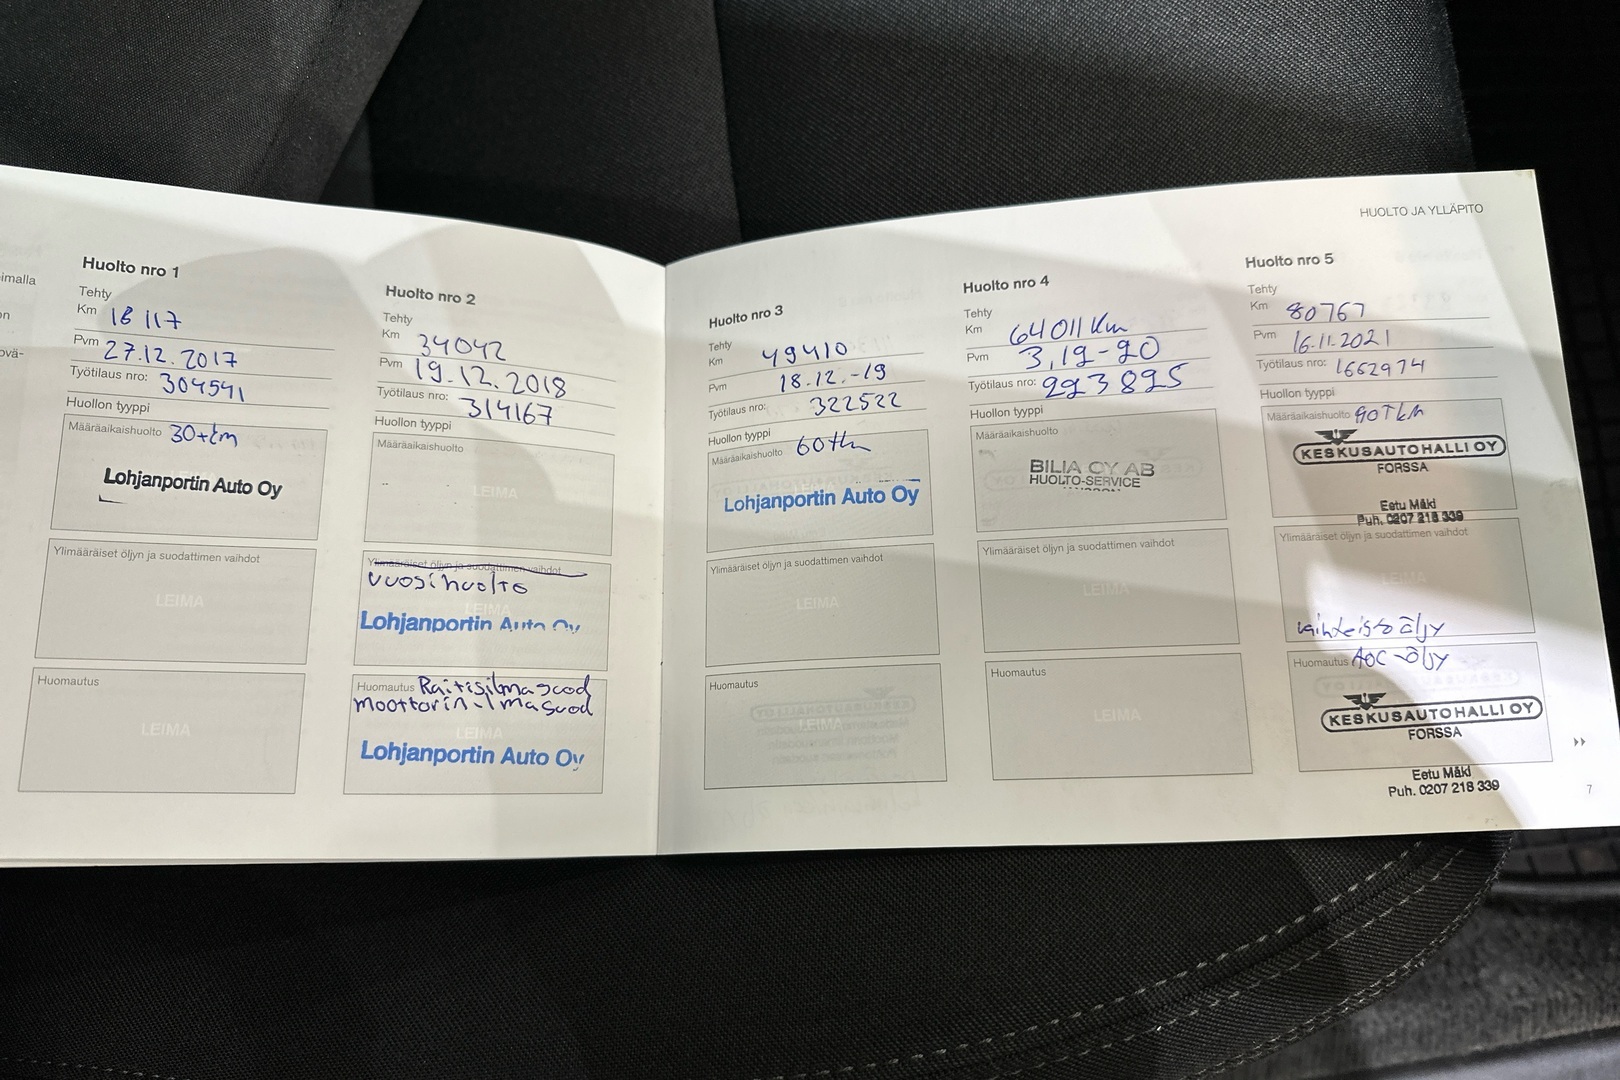 imalla
on
ovä-
Huolto nro 1
Tehty
Km 18 117
Pvm 27.12.2017
Työtilaus nro: 304541
Huollon tyyppi
Määräaikaishuolto 30tkm
Lohjanportin Auto Oy
Ylimääräiset öljyn ja suodattimen vaihdot
LEIMA
Huomautus
LEIMA
Huolto nro 2
Tehty
Km 34042
Pvm 19.12.2018
Työtilaus nro: 314167
Huollon tyyppi
Määräaikaishuolto
LEIMA
Ylimääräiset öljyn ja suodattimen vaihdot
vuosihuolto
LEIMA
Lohjanportin Auto Oy
Huomautus Raitisilmasuod
moottorin ilmasuod
LEIMA
Lohjanportin Auto Oy
Huolto nro 3
Tehty
Km 49410
Pvm 18.12.-19
Työtilaus nro: 322522
Huollon tyyppi
Määräaikaishuolto 60tkm
Lohjanportin Auto Oy
Ylimääräiset öljyn ja suodattimen vaihdot
LEIMA
Huomautus
LEIMA
Huolto nro 4
Tehty
Km 64011 km
Pvm 3,12-20
Työtilaus nro: 223895
Huollon tyyppi
Määräaikaishuolto
BILIA OY AB
HUOLTO-SERVICE
Ylimääräiset öljyn ja suodattimen vaihdot
LEIMA
Huomautus
LEIMA
HUOLTO JA YLLÄPITO
Huolto nro 5
Tehty
Km 80767
Pvm 16.11.2021
Työtilaus nro: 1662974
Huollon tyyppi
Määräaikaishuolto 90Tkm
KESKUSAUTOHALLI OY
FORSSA
Eetu Mäki
Puh. 0207 218 339
Ylimääräiset öljyn ja suodattimen vaihdot
LEIMA
vaihteistoöljy
Huomautus AOC-öljy
KESKUSAUTOHALLI OY
FORSSA
Eetu Mäki
Puh. 0207 218 339
7